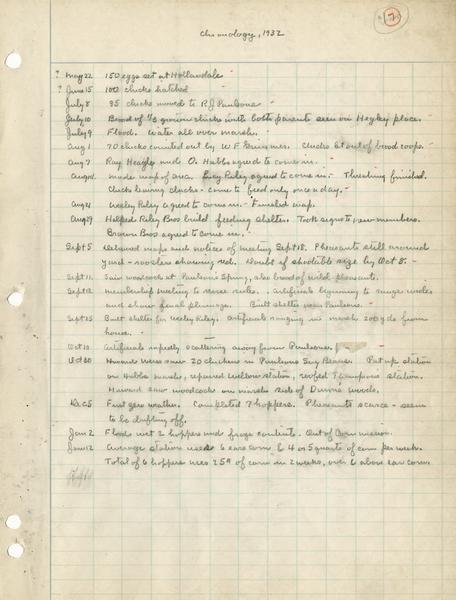 17
Chronology, 1932
? May 22 150 eggs set at Hollandale
? June 15 100 chicks hatched
July 8 95 chicks moved to R.J. Paulson's
July 10 Brood of 1/3 grown chicks with both parents seen on Hegley place.
July 9 Flood. Water all over marsh.
Aug 1 70 chicks counted out by W F Grimmer. Clucks let out of brood coops.
Aug 7 Ray Heagle and O. Hubbs agreed to come in.
Aug 14 made map of area. Riley agreed to come in. Threshing finished.
Chicks leaving clucks - come to feed only once a day.
Aug 21 Wesley Riley agreed to come in. Finished map.
Aug 29 Helped Riley Bros build feeding shelter. Took signs to new members.
Brown Bros agreed to come in.
Sept 5 Delivered maps and notices of meeting Sept 18. Pheasants still around
yard - roosters showing red. Doubt if shootable size by Oct 8.
Sept 11. Saw woodcock at Paulson's Spring, also brood of wild pheasants.
Sept 18 membership meeting to revise rules. Artificials beginning to range widely
and show final plumage. Built shelter near Paulsons.
Sept 25 Built shelter for Wesley Riley. Artificials ranging in marsh 200 yds from
house.
Oct 10 Artificials rapidly scattering away from Paulsons.
Oct 30 Howard saw 20 chickens in Paulsons Soy Beans. Put up station
on Hubbs marsh, repaired willow station, roofed station.
Howard saw woodcocks on marsh side of woods.
Dec 5 First zero weather. Completed 7 hoppers. Pheasants scarce - seem
to be drifting off.
Jan 2 Flood wet 2 hoppers and froze contents. Out of corn
Jan 12 Average station uses 6 ears corn & 4 or 5 quarts of corn per week.
Total of 6 hoppers uses of corn in 2 weeks, over & above ear corn.